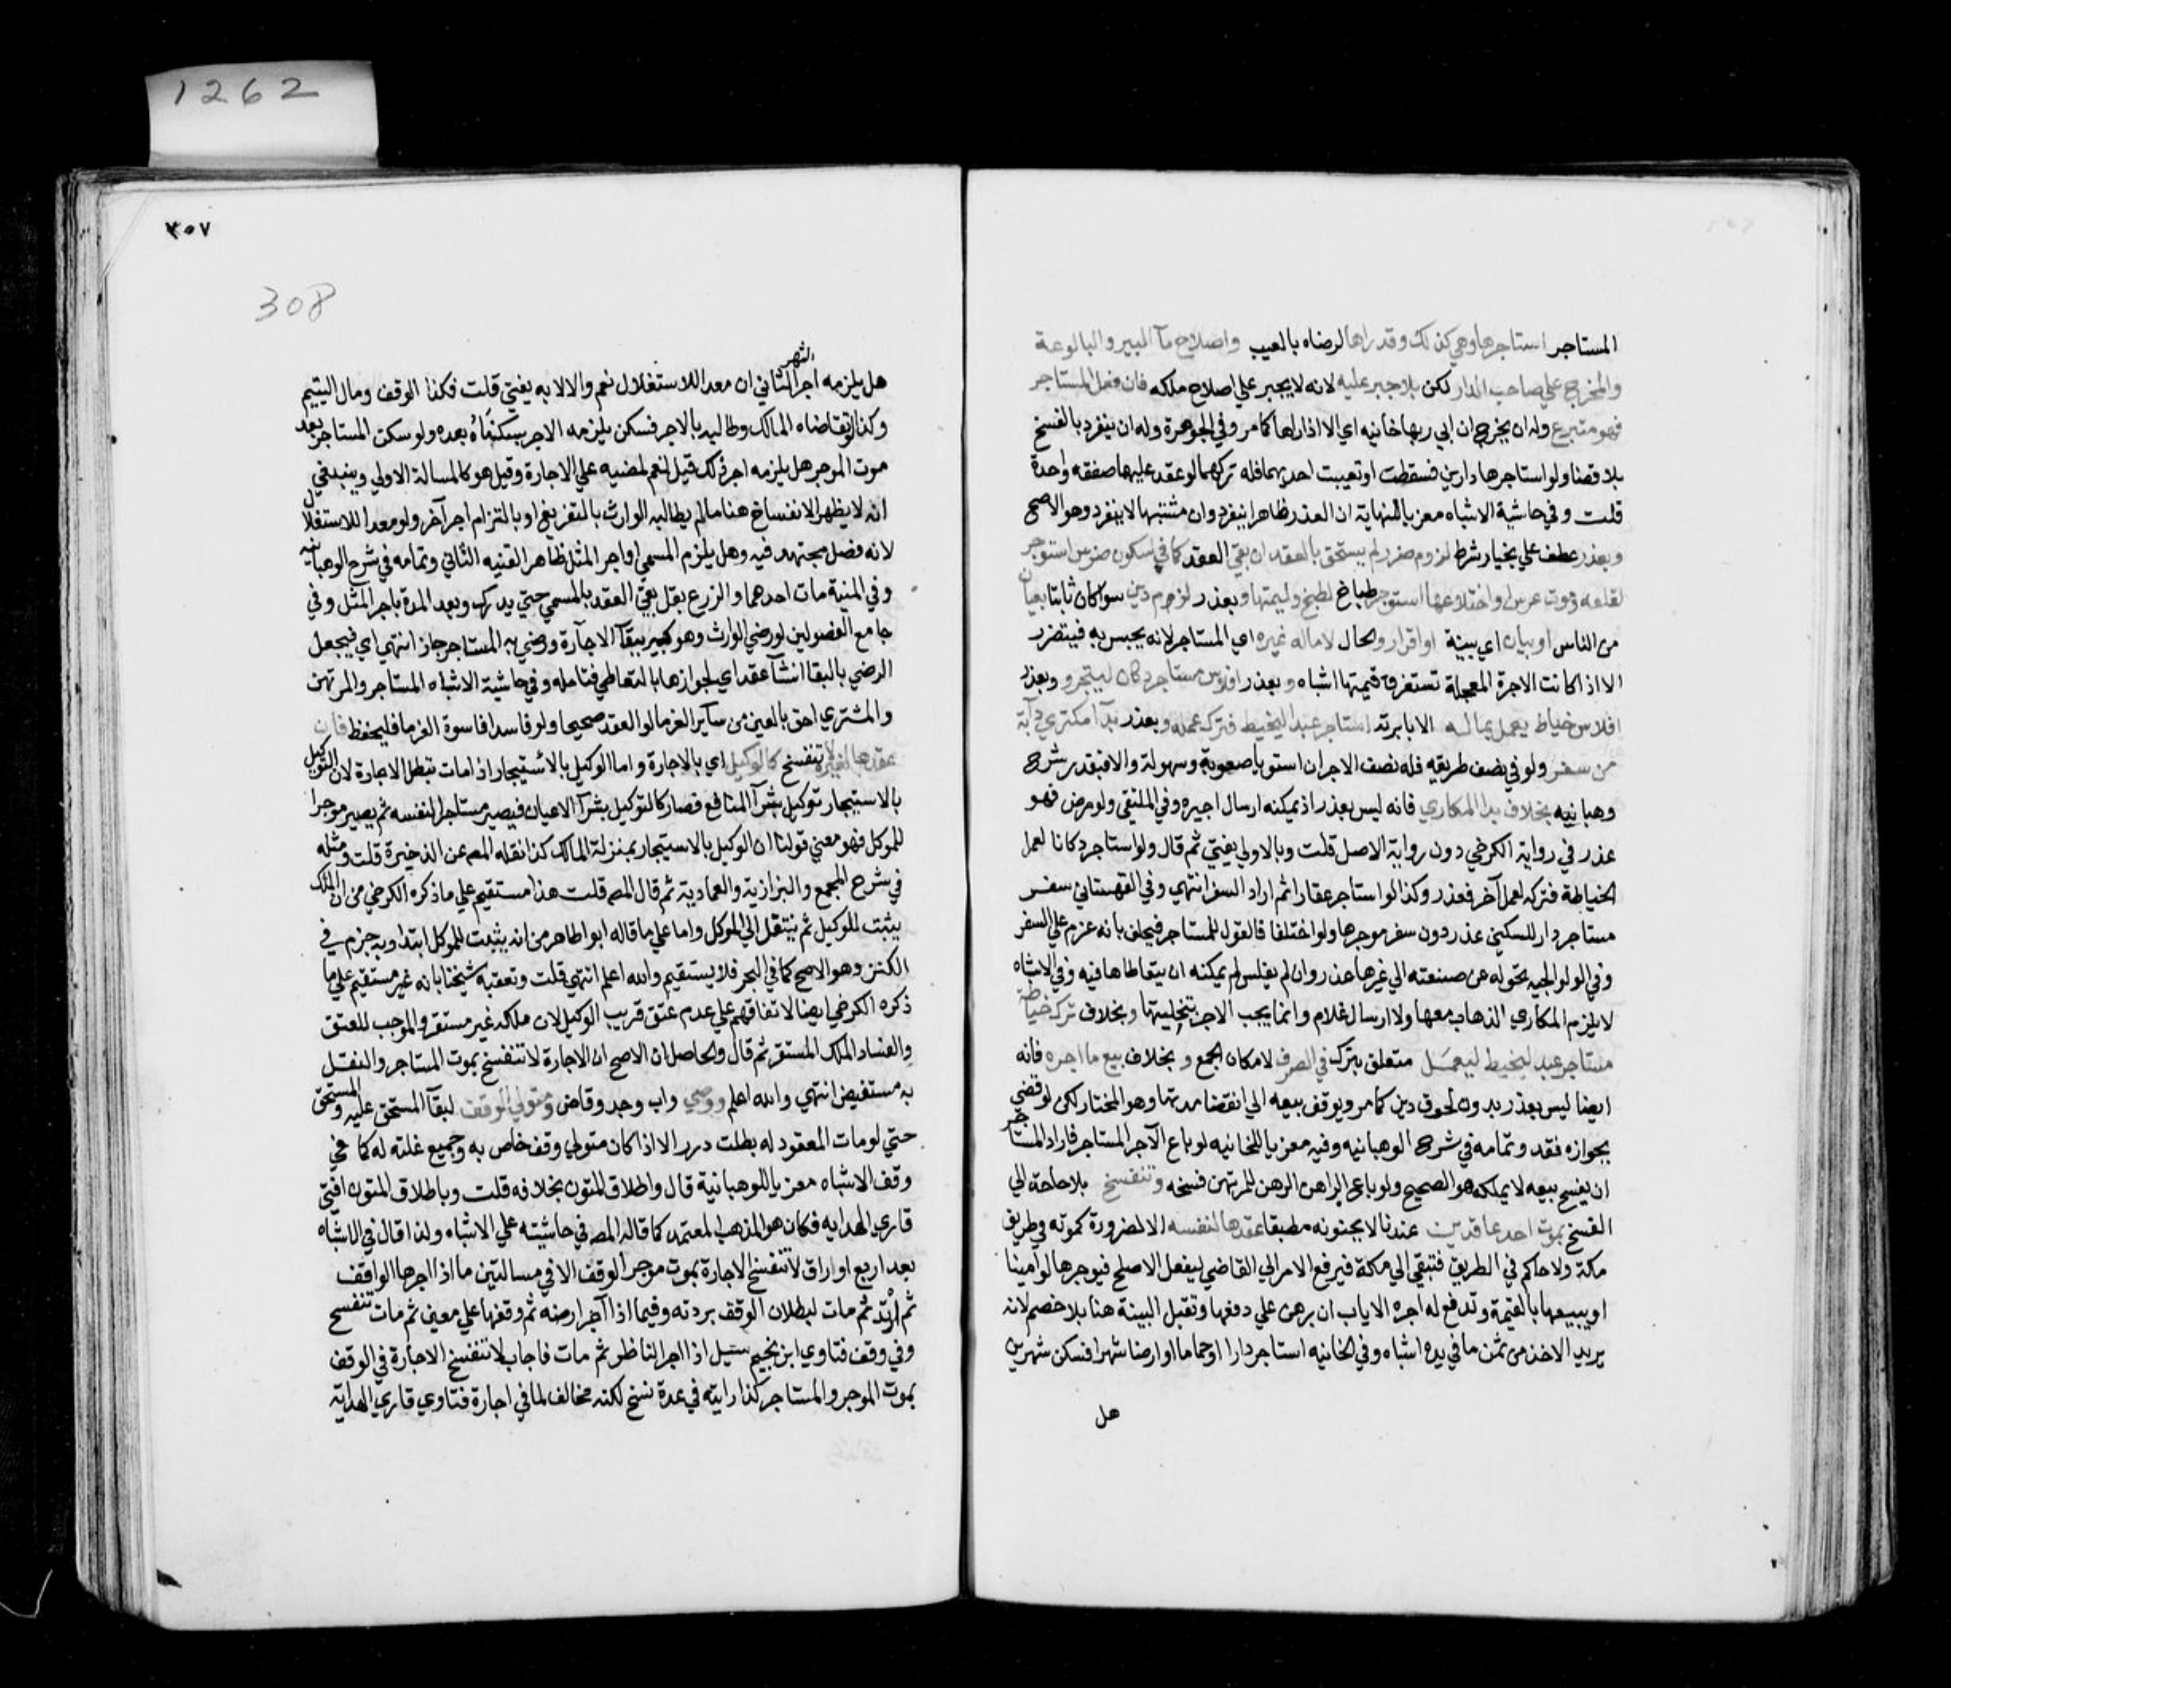 1262
المستاجر استاجرها وهي كذلك وقد راها لرضاه بالعيب واصلاح مآ البير والبالوعة
والمخرج علي صاحب الدار لكن بلا جبر عليه لانه لا يجبر علي اصلاح ملكه فان فعل المستاجر
فهو متبرع وله ان يخرج ان ابي ربها خانيه اي الا اذا راها كما مر وفي الجوهرة وله ان ينفرد بالفسخ
بلا قضا ولو استاجرها دارين فسقطت او تعيبت احديهما فله تركهما لو عقد عليهما صفقه واحدة
قلت وفي حاشية الاشباه معزيا للنهاية ان العذر ظاهرا ينفرد وان مشتبها لا ينفرد وهو الاصح
وبعذر عطف علي بخيار شرط لزوم ضرر لم يستحق بالعقد ان بقي العقد كما في سكون ضرس استوجر
لقلعه وموت عرس او اختلاعها استوجر طباخ لطبخ وليمتها وبعذر لزوم دين سوا كان ثابتا بعيان
من الناس او بيان اي بينة او اقرار والحال لا مال له غيره اي المستاجر لانه يحبس به فيتضرر
الا اذا كانت الاجرة المعجلة تستغرق قيمتها اشباه وبعذر افلاس مستاجر دكان ليتجر وبعذر
افلاس خياط يعمل بماله الا بابرته استاجر عبدا ليخيط فترك عمله وبعذر بدآ مكتري دآبة
من سفر ولو في نصف طريقه فله نصف الاجر ان استويا صعوبة وسهولة والا فبقدره شرح
وهبانيه بخلاف بدا المكاري فانه ليس بعذر اذ يمكنه ارسال اجيره وفي الملتقي ولو مرض فهو
عذر في رواية الكرخي دون رواية الاصل قلت وبالاولي يفتي ثم قال ولو استاجر دكانا لعمل
الخياطة فتركه لعمل آخر فعذر وكذا لو استاجر عقارا ثم اراد السفر انتهي وفي القهستاني سفر
مستاجر دار للسكني عذر دون سفر موجرها ولو اختلفا فالقول للمستاجر فيحلف بانه عزم علي السفر
وفي الولوالجيه تحوله عن صنعته الي غيرها عذر وان لم يفلس لم يمكنه ان يتعاطاها فيه وفي الاشباه
لا يلزم المكاري الذهاب معها ولا ارسال غلام وانما يجب الاجر بتخليتها وبخلاف ترك خياطة
مستاجر عبد ليخيط ليعمل متعلق بترك في الصرف لامكان الجمع وبخلاف بيع ما اجره فانه
ايضا ليس بعذر بدون لحوق دين كما مر ويوقف بيعه الي انقضا مدتها وهو المختار لكن لو قضي
بجوازه نفذ وتمامه في شرح الوهبانيه وفيه معزيا للخانيه لو باع الآجر المستاجر فاراد المستاجر
ان يفسخ بيعه لا يملكه هو الصحيح ولو باع الراهن الرهن للمرتهن فسخه وتنفسخ بلا حاجة الي
الفسخ بموت احد عاقدين عندنا لا بجنونه مطبقا عقدها لنفسه الا لضرورة كموته في طريق
مكة ولا حاكم في الطريق فتبقي الي مكة فيرفع الامر الي القاضي ليفعل الاصلح فيوجرها لو امينا
او يبيعها بالقيمة وتدفع له اجره الاياب ان برهن علي دفعها وتقبل البينة هنا بلا خصم لانه
يريد الاخذ من ثمن ما في يده اشباه وفي الخانيه استاجر دارا او حماما او ارضا شهرا فسكن شهرين
هل
٣٥٧
308
هل يلزمه اجر الشهر الثاني ان معدا للاستغلال نعم والا لا به يفتي قلت فكذا الوقف ومال اليتيم
وكذا لو تقاضاه المالك وطالبه بالاجر فسكن يلزمه الاجر بسكناه بعده ولو سكن المستاجر بعد
موت الموجر هل يلزمه اجر ذلك قيل نعم لمضيه علي الاجارة وقيل هو كالمسالة الاولي وينبغي
انه لا يظهر الانفساخ هنا ما لم يطالبه الوارث بالتفريغ او بالتزام اجر آخر ولو معدا للاستغلال
لانه فصل مجتهد فيه وهل يلزم المسمي او اجر المثل ظاهر القنيه الثاني وتمامه في شرح الوهبانيه
وفي المنية مات احدهما والزرع بقل بقي العقد بالمسمي حتي يدرك وبعد المدة باجر المثل وفي
جامع الفصولين لو رضي الوارث وهو كبير ببقآ الاجآرة ورضي به المستاجر جاز انتهي اي فيجعل
الرضي بالبقا انشآ عقد اي لجوازها بالتعاطي فتامله وفي حاشية الاشباه المستاجر والمرتهن
والمشتري احق بالعين من سآير الغرما لو العقد صحيحا ولو فاسدا فاسوة الغرما فليحفظ فان
عقدها لغيره لا تنفسخ كالوكيل اي بالاجارة واما الوكيل بالاستيجار اذا مات تبطل الاجارة لان التوكيل
بالاستيجار توكيل بشرآ المنافع فصار كالتوكيل بشرآ الاعيان فيصير مستاجرا لنفسه ثم يصير موجرا
للموكل فهو معني قولنا ان الوكيل بالاستيجار بمنزلة المالك كذا نقله المص عن الذخيرة قلت ومثله
في شرح المجمع والبزازية والعمادية ثم قال المص قلت هذا مستقيم علي ما ذكره الكرخي من ان الملك
يثبت للوكيل ثم ينتقل الي الموكل واما علي ما قاله ابو اطاهر من انه يثبت للموكل ابتدا وبه جزم في
الكنز وهو الاصح كما في البحر فلا يستقيم والله اعلم انتهي قلت وتعقبه شيخنا بانه غير مستقيم علي ما
ذكره الكرخي ايضا لاتفاقهم علي عدم عتق قريب الوكيل لان ملكه غير مستقر والموجب للعتق
والفساد الملك المستقر ثم قال والحاصل ان الاصح ان الاجارة لا تنفسخ بموت المستاجر والنقل
به مستفيض انتهي والله اعلم ووصي واب وجد وقاض ومتولي الوقف لبقآ المستحق عليه والمستحق
حتي لو مات المعقود له بطلت درر الا اذا كان متولي وقف خاص به وجميع غلته له كما في
وقف الاشباه معزيا للوهبانية قال واطلاق المتون بخلافه قلت وباطلاق المتون افتي
قاري الهدايه فكان هو المذهب المعتمد كما قاله المص في حاشيته علي الاشباه ولذا قال في الاشباه
بعد اربع اوراق لا تنفسخ الاجارة بموت موجر الوقف الا في مسالتين ما اذا اجرها الواقف
ثم ارتد ثم مات لبطلان الوقف بردته وفيما اذا آجر ارضه ثم وقفها علي معين ثم مات تنفسخ
وفي وقف فتاوي ابن نجيم سئيل اذا اجر الناظر ثم مات فاجاب لا تنفسخ الاجارة في الوقف
بموت الموجر والمستاجر كذا رايته في عدة نسخ لكنه مخالف لما في اجارة فتاوي قاري الهداية